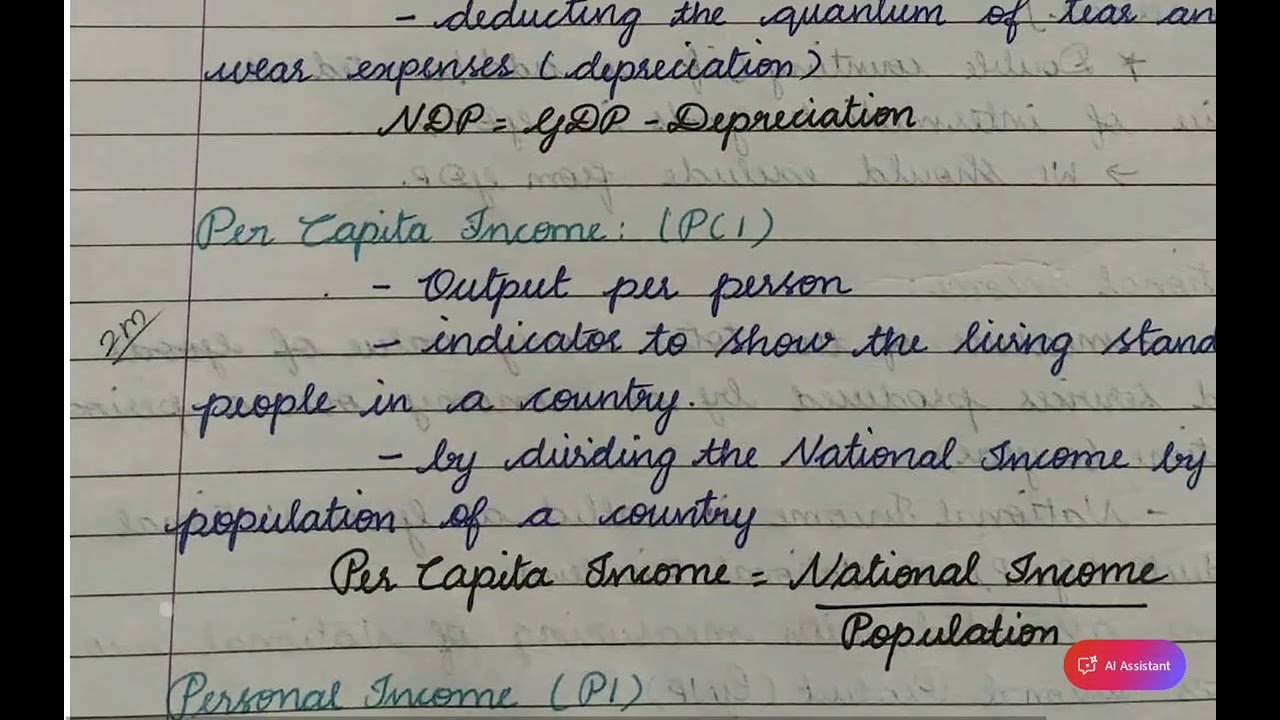 - deducting the quantum of tear an
wear expenses (depreciation)
NDP = GDP - Depreciation
Per Capita Income: (PCI)
- Output per person
2m
- indicator to show the living stand
people in a country.
- by dividing the National Income by
population of a country
Per Capita Income = National Income
Population
AI Assistant
Personal Income (PI)